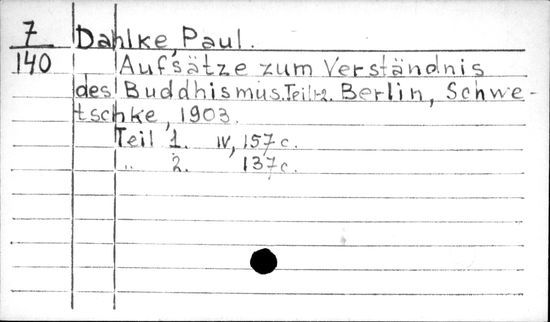 7 Dahlke, Paul.
140 Aufsätze zum Verständnis
des Buddhismus. Teil 1-2. Berlin, Schwe-
tschke, 1903.
Teil 1. IV, 157 c.
„ 2. 137 c.